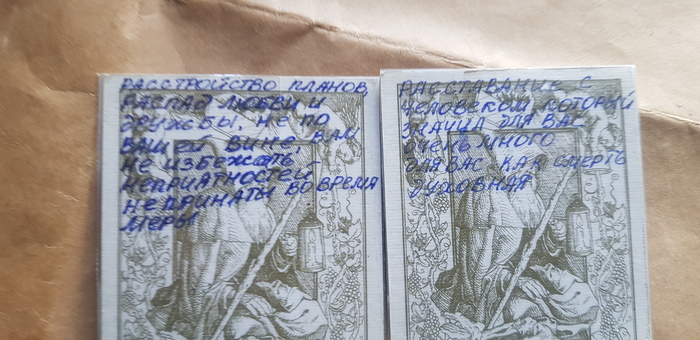 РАССТРОЙСТВО ПЛАНОВ,
РАСПАД ЛЮБВИ И
ДРУЖБЫ, НЕ ПО
ВАШЕЙ ВИНЕ, ВАМ
НЕ ИЗБЕЖАТЬ -
НЕПРИЯТНОСТЕЙ -
НЕ ПРИНАТЫ ВО ВРЕМЯ
МЕРЫ
РАССТАВАНИЕ С
ЧЕЛОВЕКОМ КОТОРЫЙ
ЗНАЧИЛ ДЛЯ ВАС
ОЧЕНЬ МНОГО
ДЛЯ ВАС КАК СМЕРТЬ
ДУХОВНАЯ